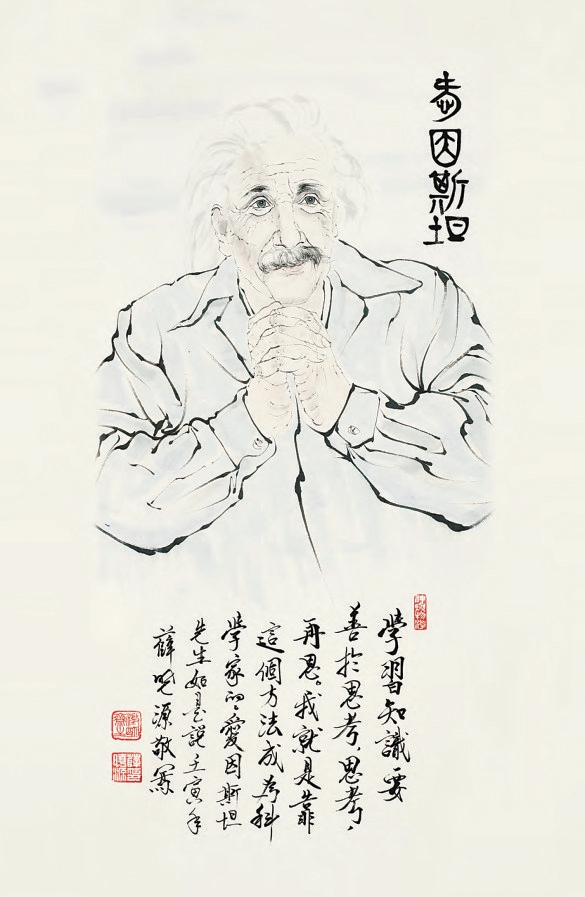 爱因斯坦
學習知識要
善於思考，思考，
再思。我就是靠
這個方法成為科
學家的。愛因斯坦
先生如是說壬寅年
薛曉源敬寫